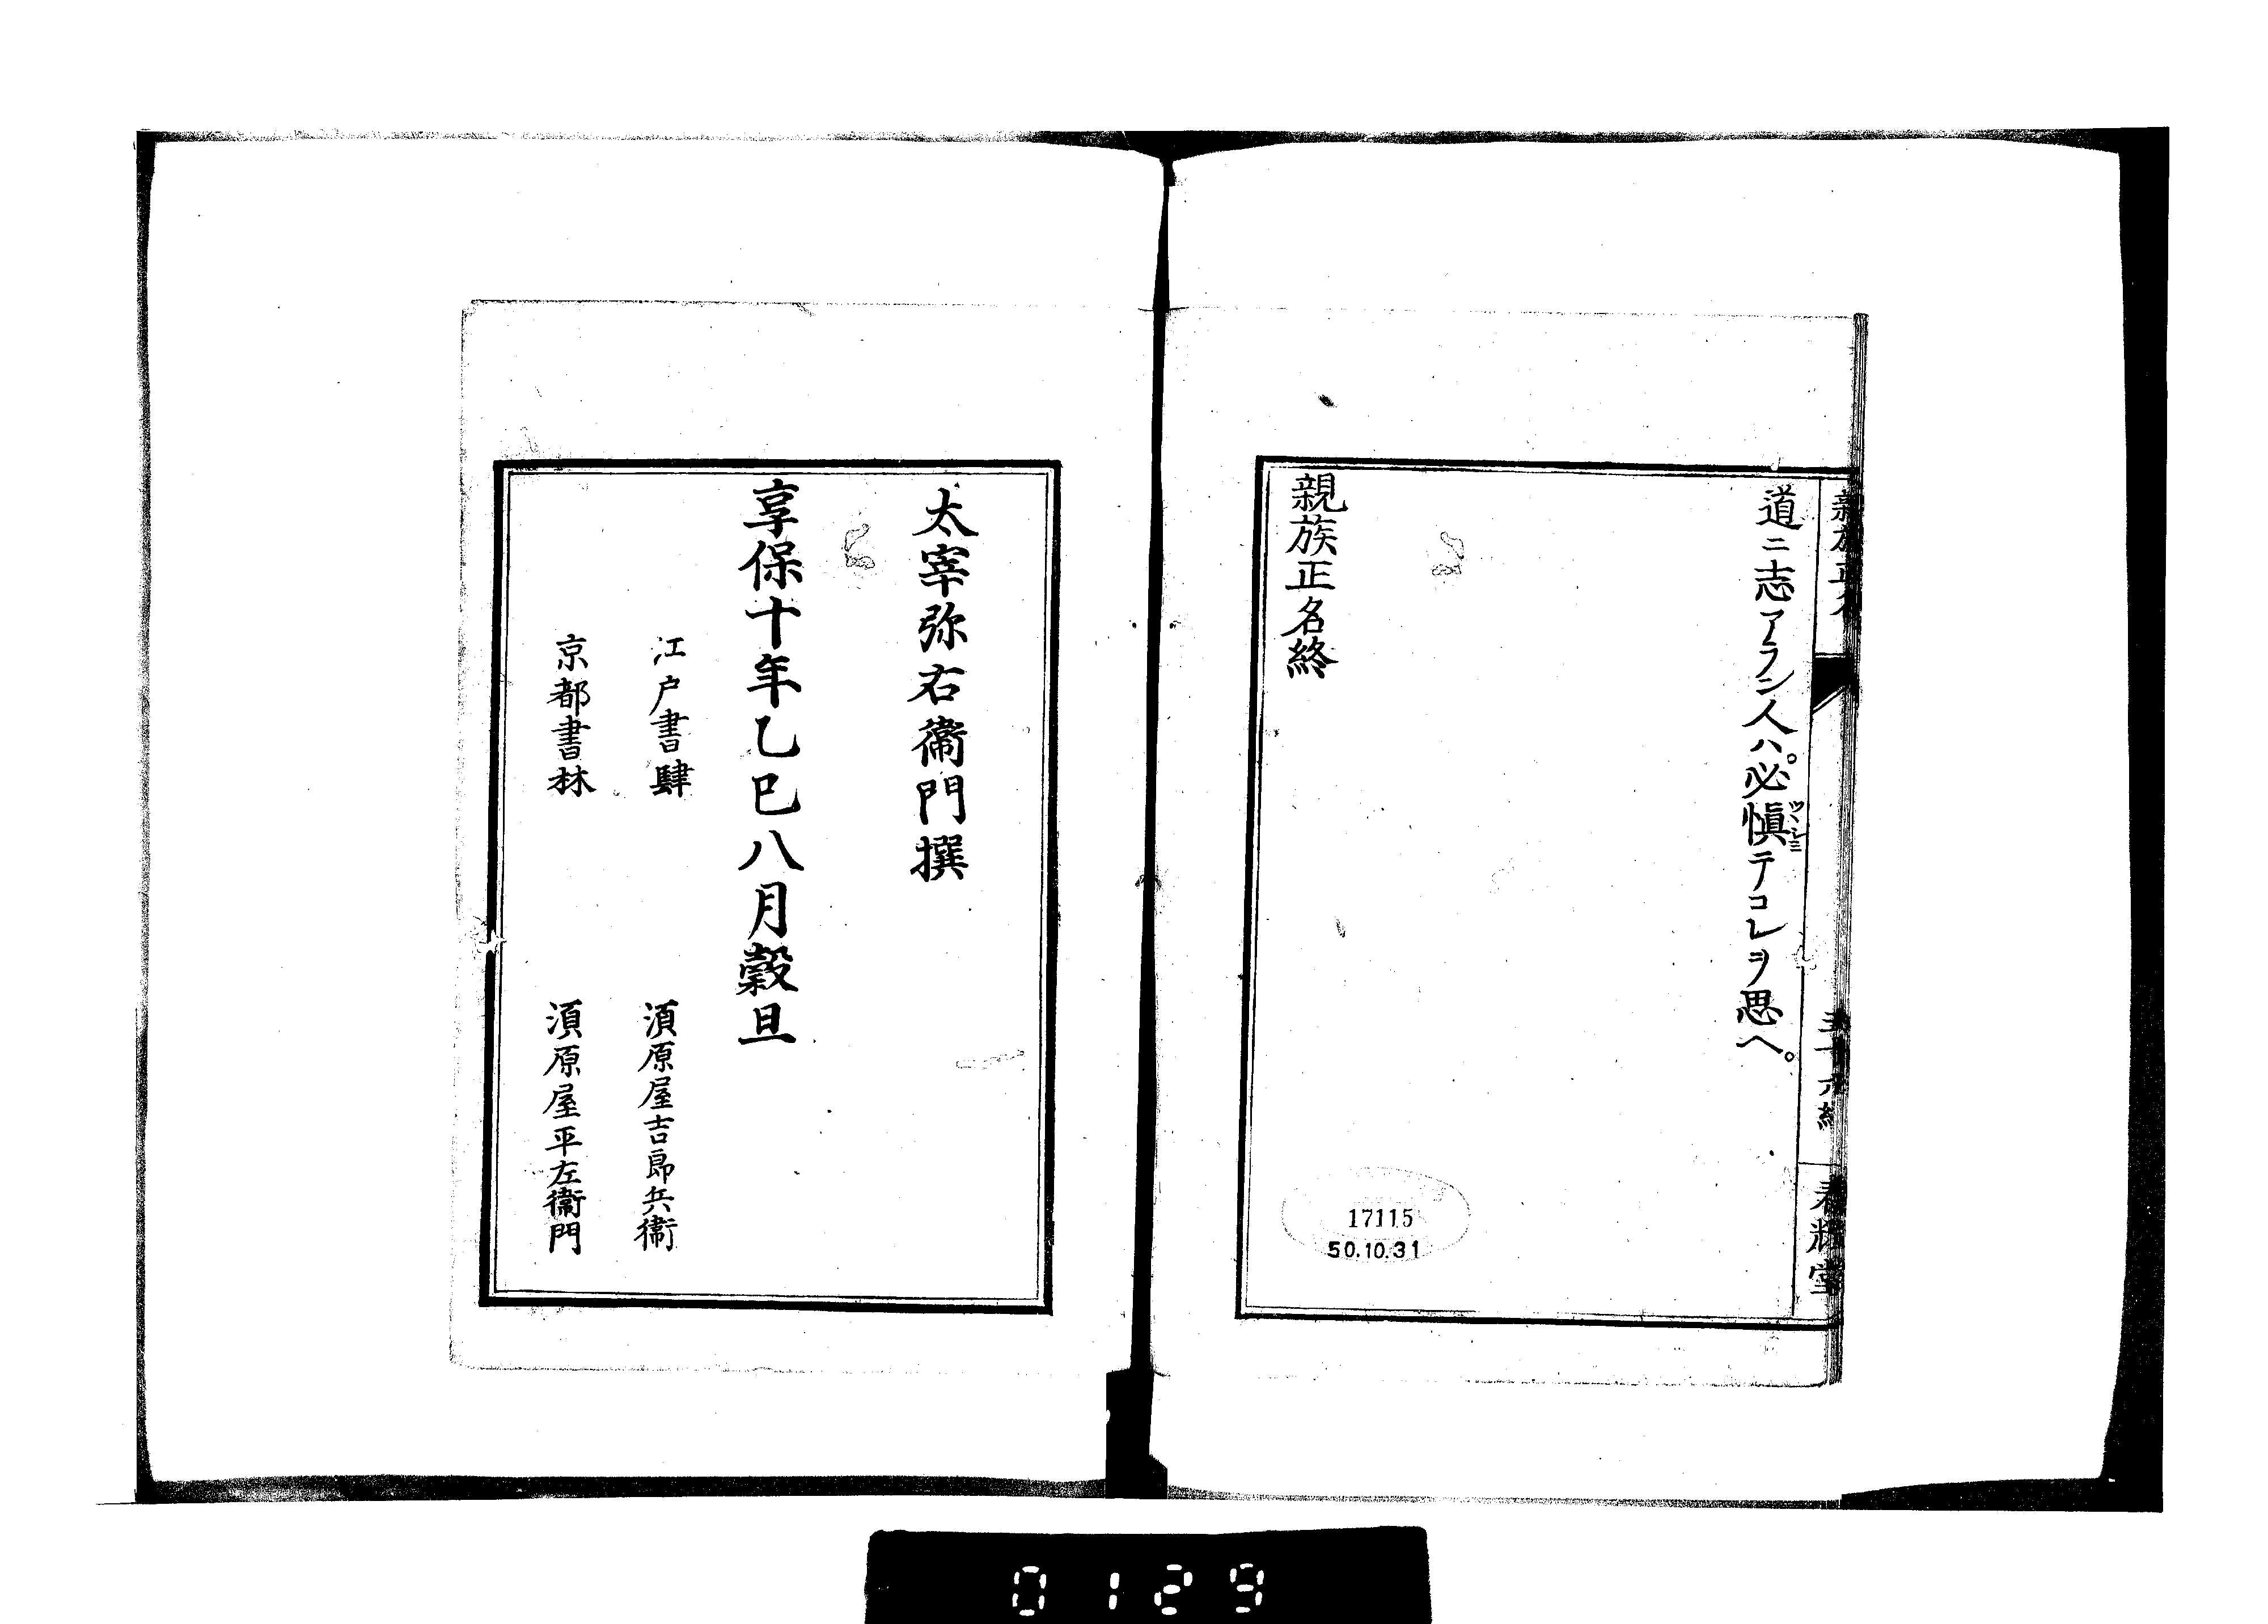 親族正名
五十六終
道ニ志アラン人ハ。必慎テコレヲ思ヘ。
親族正名終
17115
50.10.31
太宰弥右衞門撰
享保十年乙巳八月穀旦
江戸書肆 湏原屋吉郎兵衞
京都書林 湏原屋平左衞門
0129